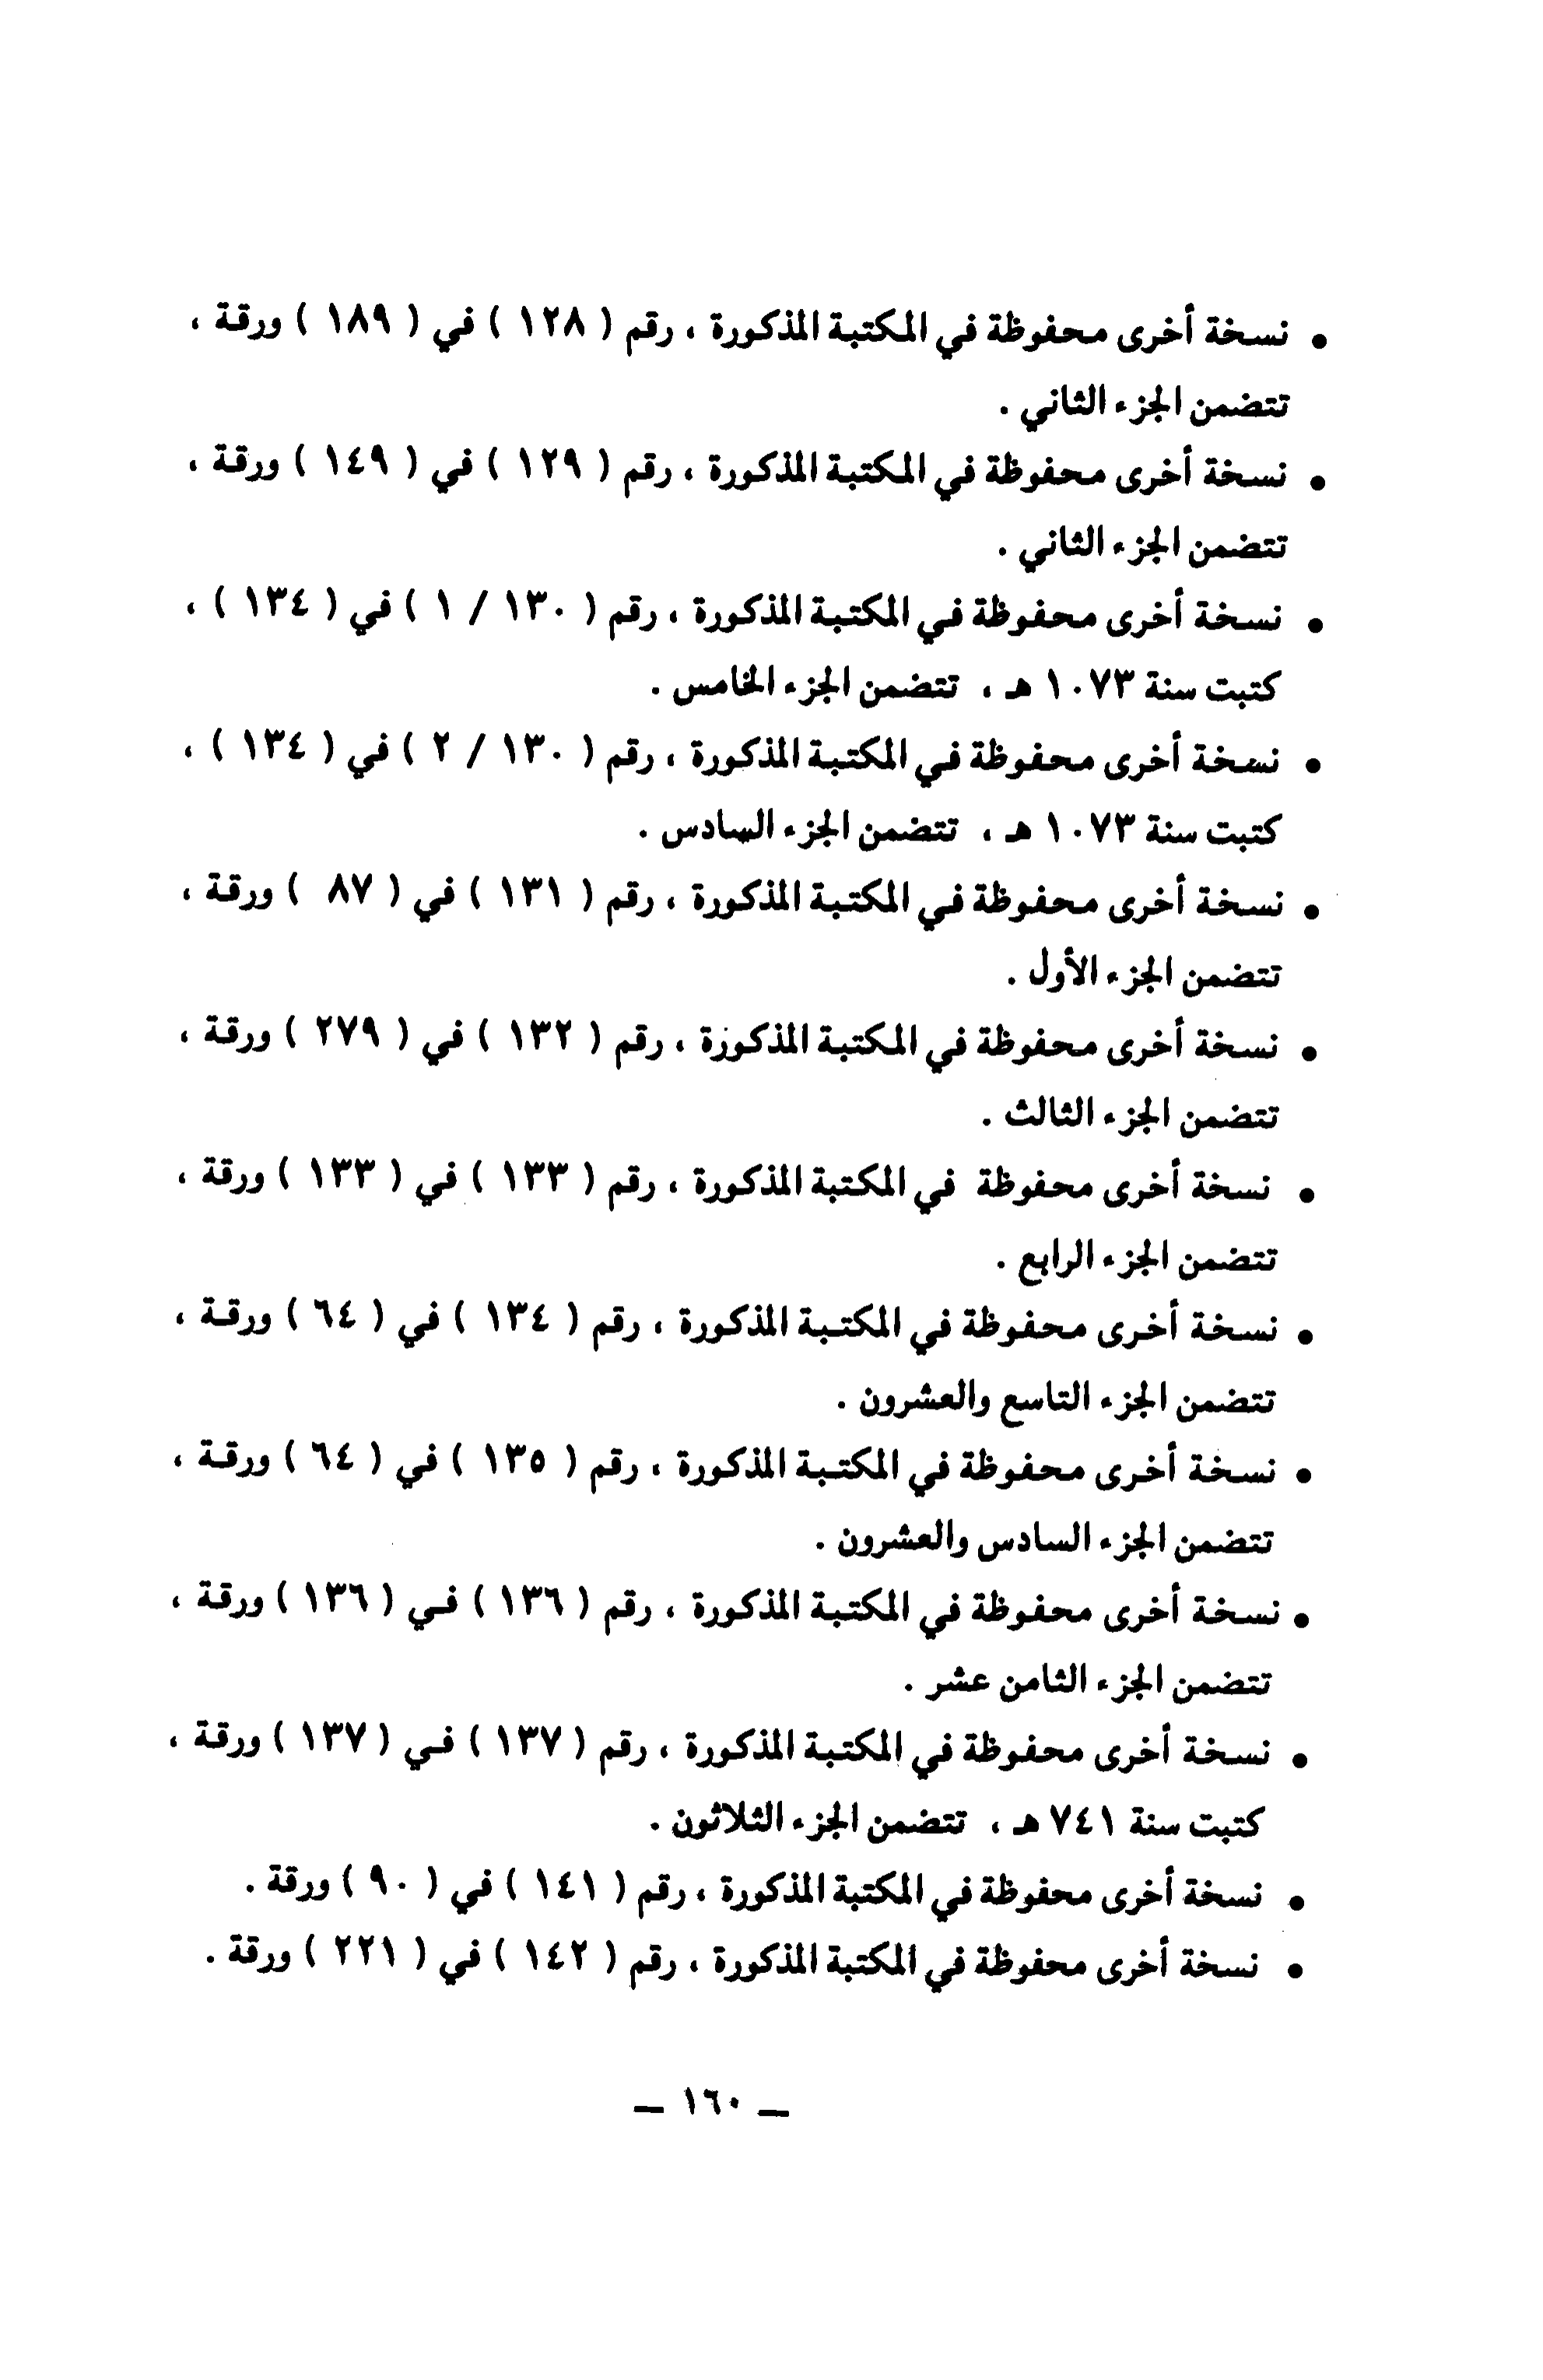 • نسخة أخرى محفوظة في المكتبة المذكورة ، رقم ( ١٢٨ ) في ( ١٨٩ ) ورقة ،
تتضمن الجزء الثاني .
• نسخة أخرى محفوظة في المكتبة المذكورة ، رقم ( ١٢٩ ) في ( ١٤٩ ) ورقة ،
تتضمن الجزء الثاني .
• نسخة أخرى محفوظة في المكتبة المذكورة ، رقم ( ١٣٠ / ١ ) في ( ١٣٤ ) ،
كتبت سنة ١٠٧٣ هـ ، تتضمن الجزء الخامس .
• نسخة أخرى محفوظة في المكتبة المذكورة ، رقم ( ١٣٠ / ٢ ) في ( ١٣٤ ) ،
كتبت سنة ١٠٧٣ هـ ، تتضمن الجزء السادس .
• نسخة أخرى محفوظة في المكتبة المذكورة ، رقم ( ١٣١ ) في ( ٨٧ ) ورقة ،
تتضمن الجزء الأول .
• نسخة أخرى محفوظة في المكتبة المذكورة ، رقم ( ١٣٢ ) في ( ٢٧٩ ) ورقة ،
تتضمن الجزء الثالث .
• نسخة أخرى محفوظة في المكتبة المذكورة ، رقم ( ١٣٣ ) في ( ١٣٣ ) ورقة ،
تتضمن الجزء الرابع .
• نسخة أخرى محفوظة في المكتبة المذكورة ، رقم ( ١٣٤ ) في ( ٦٤ ) ورقة ،
تتضمن الجزء التاسع والعشرون .
• نسخة أخرى محفوظة في المكتبة المذكورة ، رقم ( ١٣٥ ) في ( ٦٤ ) ورقة ،
تتضمن الجزء السادس والعشرون .
• نسخة أخرى محفوظة في المكتبة المذكورة ، رقم ( ١٣٦ ) في ( ١٣٦ ) ورقة ،
تتضمن الجزء الثامن عشر .
• نسخة أخرى محفوظة في المكتبة المذكورة ، رقم ( ١٣٧ ) في ( ١٣٧ ) ورقة ،
كتبت سنة ٧٤١ هـ ، تتضمن الجزء الثلاثون .
• نسخة أخرى محفوظة في المكتبة المذكورة ، رقم ( ١٤١ ) في ( ٩٠ ) ورقة .
• نسخة أخرى محفوظة في المكتبة المذكورة ، رقم ( ١٤٢ ) في ( ٢٢١ ) ورقة .
— ١٦٠ —